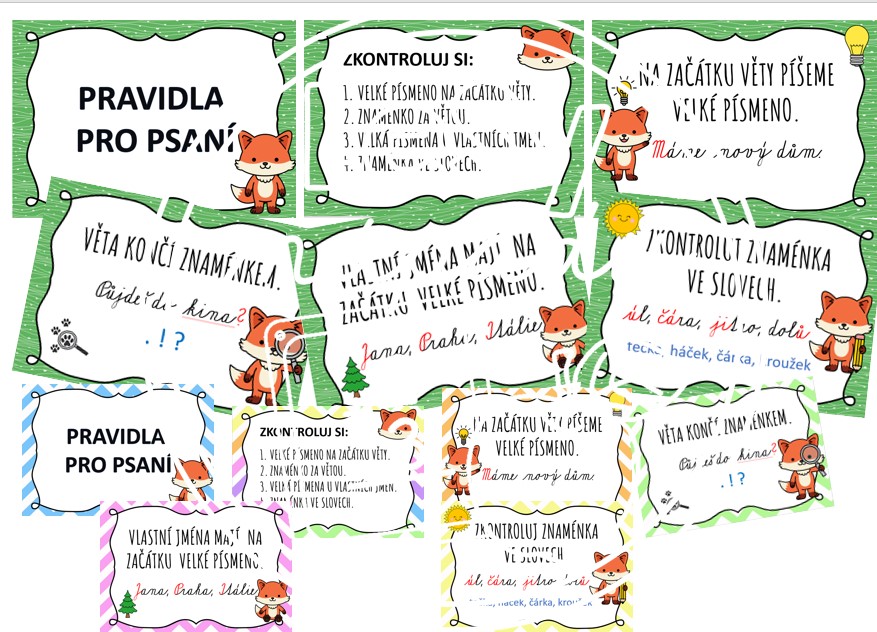 PRAVIDLA
PRO PSANÍ
ZKONTROLUJ SI:
1. VELKÉ PÍSMENO NA ZAČÁTKU VĚTY.
2. ZNAMÉNKO ZA VĚTOU.
3. VELKÁ PÍSMENA U VLASTNÍCH JMEN.
4. ZNAMÉNKA VE SLOVECH.
NA ZAČÁTKU VĚTY PÍŠEME
VELKÉ PÍSMENO.
Máme nový dům.
VĚTA KONČÍ ZNAMÉNKEM.
Půjdeš do kina?
. ! ?
VLASTNÍ JMÉNA MAJÍ NA
ZAČÁTKU VELKÉ PÍSMENO.
Jana, Praha, Itálie
ZKONTROLUJ ZNAMÉNKA
VE SLOVECH.
úl, čára, jitro, dolů
tečka, háček, čárka, kroužek
PRAVIDLA
PRO PSANÍ
ZKONTROLUJ SI:
1. VELKÉ PÍSMENO NA ZAČÁTKU VĚTY.
2. ZNAMÉNKO ZA VĚTOU.
3. VELKÁ PÍSMENA U VLASTNÍCH JMEN.
4. ZNAMÉNKA VE SLOVECH.
NA ZAČÁTKU VĚTY PÍŠEME
VELKÉ PÍSMENO.
Máme nový dům.
VĚTA KONČÍ ZNAMÉNKEM.
do kina?
. ! ?
VLASTNÍ JMÉNA MAJÍ NA
ZAČÁTKU VELKÉ PÍSMENO.
Jana, Praha, Itálie
ZKONTROLUJ ZNAMÉNKA
VE SLOVECH
úl, čára, jitro, dolů
tečka, háček, čárka, kroužek